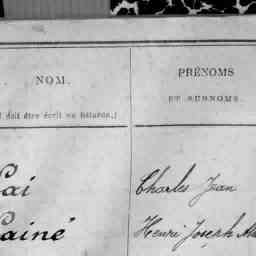 NOM.
doit être écrit en bâtarde.)
PRÉNOMS
ET SURNOMS.
Charles Jean
Henri Joseph